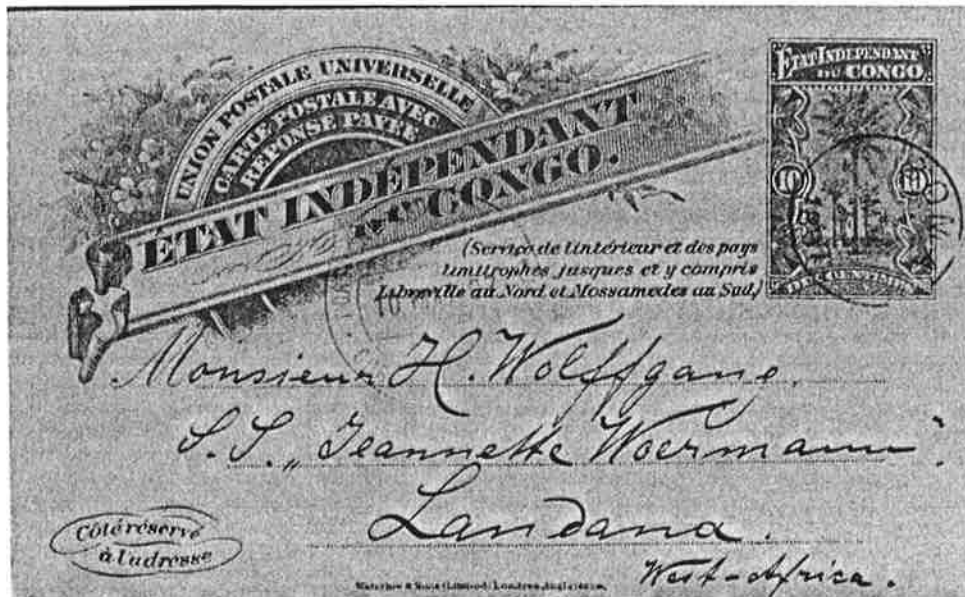 UNION POSTALE UNIVERSELLE
CARTE POSTALE AVEC
RÉPONSE PAYÉE
ÉTAT INDÉPENDANT
DU CONGO.
ÉTAT INDÉPENDANT
DU CONGO
10 10
(Service de l'intérieur et des pays
limitrophes jusques et y compris
Libreville au Nord et Mossamedes au Sud.)
Monsieur H. Wolffgang,
S.S. „Jeannette Woermann".
Landana.
West-Africa.
Côté réservé
à l'adresse
Waterlow & Sons Limited, Londres, Angleterre.